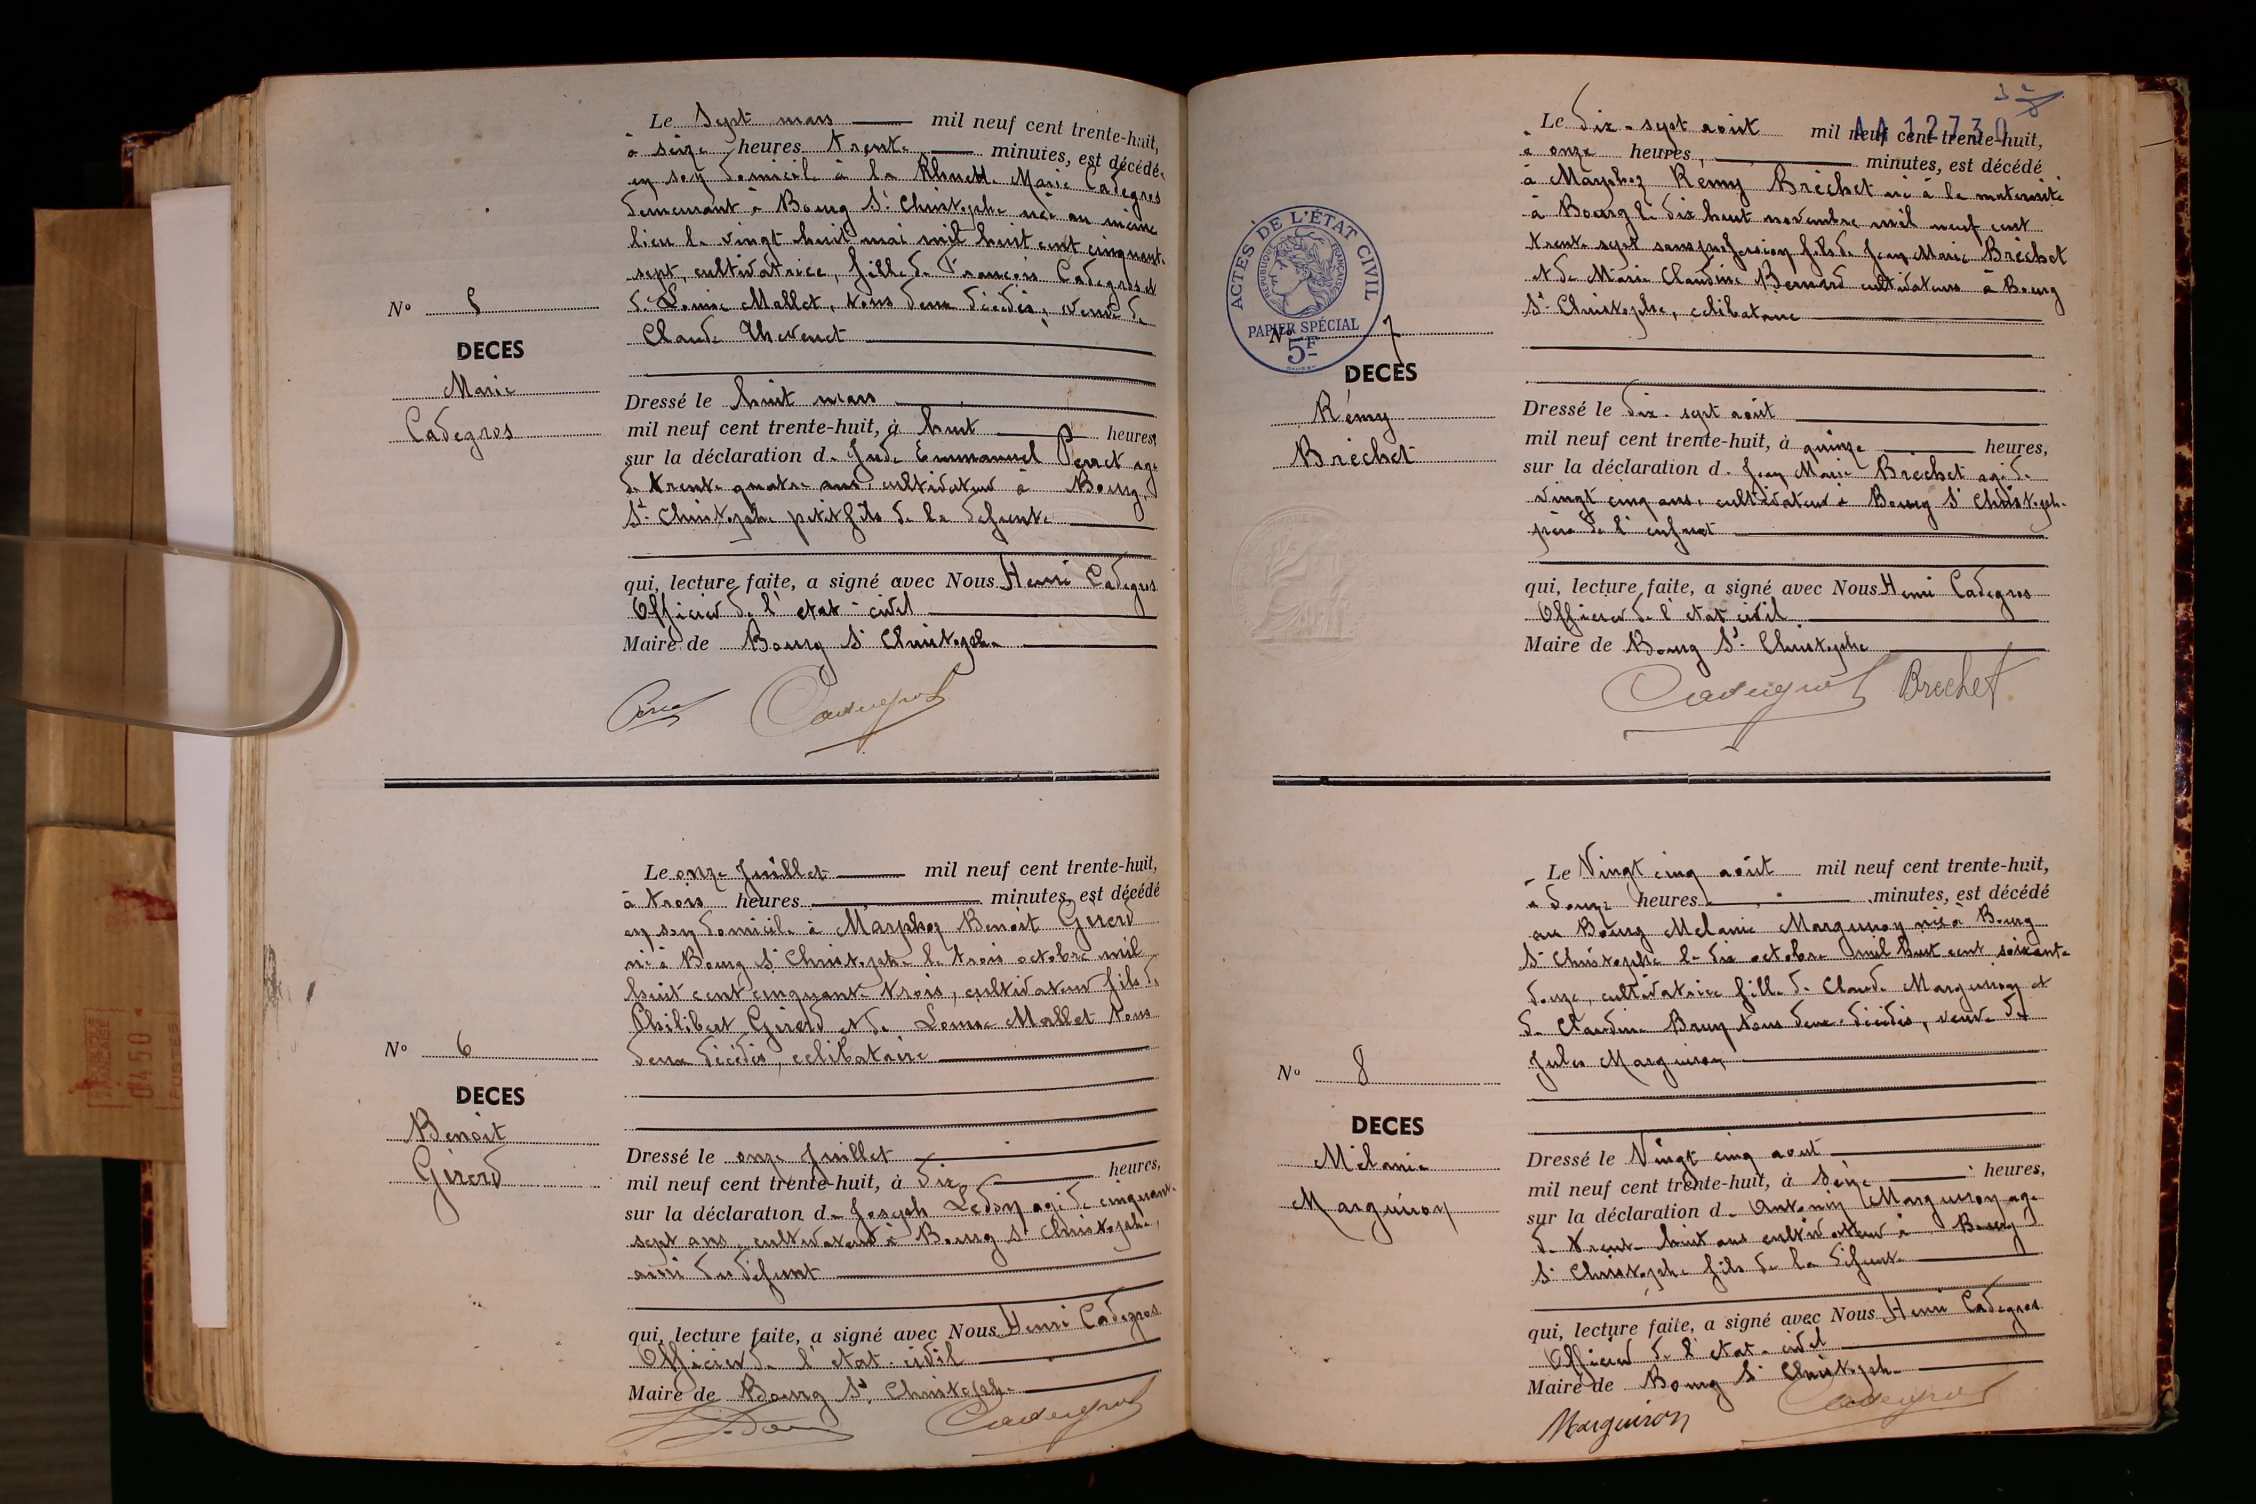 Le Sept mars mil neuf cent trente-huit,
à seize heures trente minutes, est décédée
en son domicile à la Marie Cadegros
demeurant à Bourg St Christophe née au même
lieu le vingt huit mai mil huit cent cinquante
sept, cultivatrice, fille de François Cadegros et
de Louise Mallet, tous deux décédés, veuve de
Claude Thevenet
No 5
DECES
Marie
Cadegros
Dressé le huit mars
mil neuf cent trente-huit, à huit heures,
sur la déclaration de Jude Emmanuel Perret age
de trente quatre ans, cultivateur à Bourg
St Christophe petit fils de la defunte
qui, lecture faite, a signé avec Nous Henri Cadegros
Officier de l'etat-civil
Maire de Bourg St Christophe
Cadegros
Le onze Juillet mil neuf cent trente-huit,
à trois heures minutes, est décédé
en son domicile à Marphoz Benoit Girerd
né à Bourg St Christophe le trois octobre mil
huit cent cinquante trois, cultivateur fils de
Philibert Girerd et de Louise Mallet tous
deux décédés, celibataire
No 6
DECES
Benoit
Girerd
Dressé le onze Juillet
mil neuf cent trente-huit, à dix heures,
sur la déclaration de Joseph Ledon agé de cinquante
sept ans, cultivateur à Bourg St Christophe,
ami du défunt
qui, lecture faite, a signé avec Nous Henri Cadegros
Officier de l'etat-civil
Maire de Bourg St Christophe
Cadegros
AA 12730
Le dix-sept août mil neuf cent trente-huit,
à onze heures, minutes, est décédé
à Marphoz Remy Bréchet né à la maternité
à Bourg le dix huit novembre mil neuf cent
trente sept sans profession fils de Jean Marie Bréchet
et de Marie Claudine Bernard cultivateurs à Bourg
St Christophe, celibataire
ACTES DE L'ÉTAT CIVIL
RÉPUBLIQUE FRANÇAISE
PAPIER SPÉCIAL
5F
No 7
DECES
Rémy
Bréchet
Dressé le dix-sept août
mil neuf cent trente-huit, à quinze heures,
sur la déclaration d. Jean Marie Bréchet agé de
vingt cinq ans, cultivateur à Bourg St Christophe
père de l'enfant
qui, lecture faite, a signé avec Nous Henri Cadegros
Officier de l'etat civil
Maire de Bourg St Christophe
Cadegros Brechet
Le Vingt cinq août mil neuf cent trente-huit,
à douze heures minutes, est décédé
au Bourg Melanie Marguiron née à Bourg
St Christophe le dix octobre mil huit cent soixante
douze, cultivatrice fille de Claude Marguiron et
de Claudine Brun tous deux décédés, veuve de
Jules Marguiron
No 8
DECES
Mélanie
Marguiron
Dressé le Vingt cinq aout
mil neuf cent trente-huit, à seize heures,
sur la déclaration d. Antonin Marguiron age
de trente huit ans cultivateur à Bourg
St Christophe fils de la défunte
qui, lecture faite, a signé avec Nous Henri Cadegros
Officier de l'etat-civil
Maire de Bourg St Christophe
Marguiron Cadegros
0450